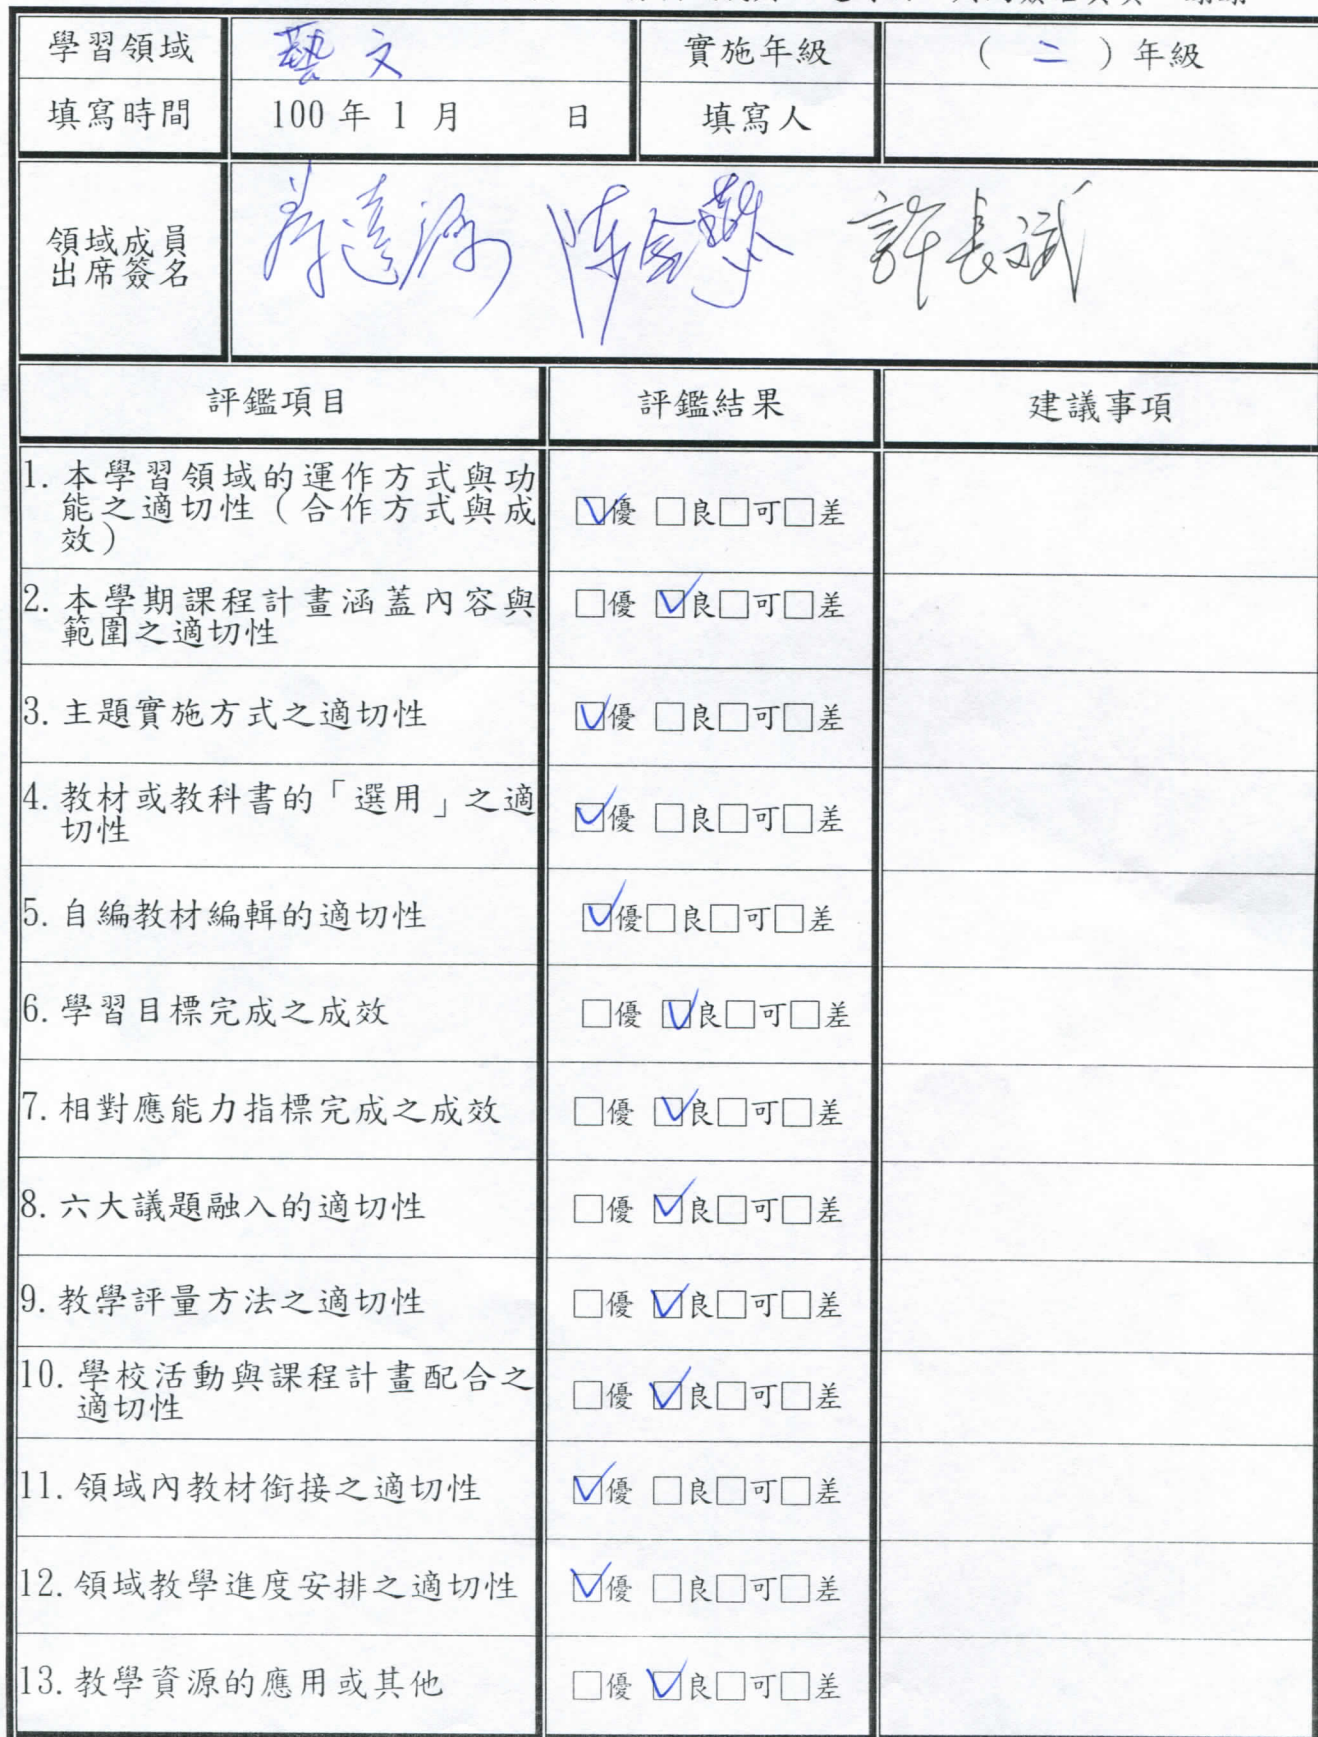 學習領域 藝文 實施年級 ( 二 ) 年級
填寫時間 100 年 1 月 日 填寫人
領域成員
出席簽名
許長斌
評鑑項目 評鑑結果 建議事項
1. 本學習領域的運作方式與功
能之適切性(合作方式與成
效)
☑優 □良□可□差
2. 本學期課程計畫涵蓋內容與
範圍之適切性
□優 ☑良□可□差
3. 主題實施方式之適切性 ☑優 □良□可□差
4. 教材或教科書的「選用」之適
切性
☑優 □良□可□差
5. 自編教材編輯的適切性 ☑優□良□可□差
6. 學習目標完成之成效 □優 ☑良□可□差
7. 相對應能力指標完成之成效 □優 ☑良□可□差
8. 六大議題融入的適切性 □優 ☑良□可□差
9. 教學評量方法之適切性 □優 ☑良□可□差
10. 學校活動與課程計畫配合之
適切性
□優 ☑良□可□差
11. 領域內教材銜接之適切性 ☑優 □良□可□差
12. 領域教學進度安排之適切性 ☑優 □良□可□差
13. 教學資源的應用或其他 □優 ☑良□可□差